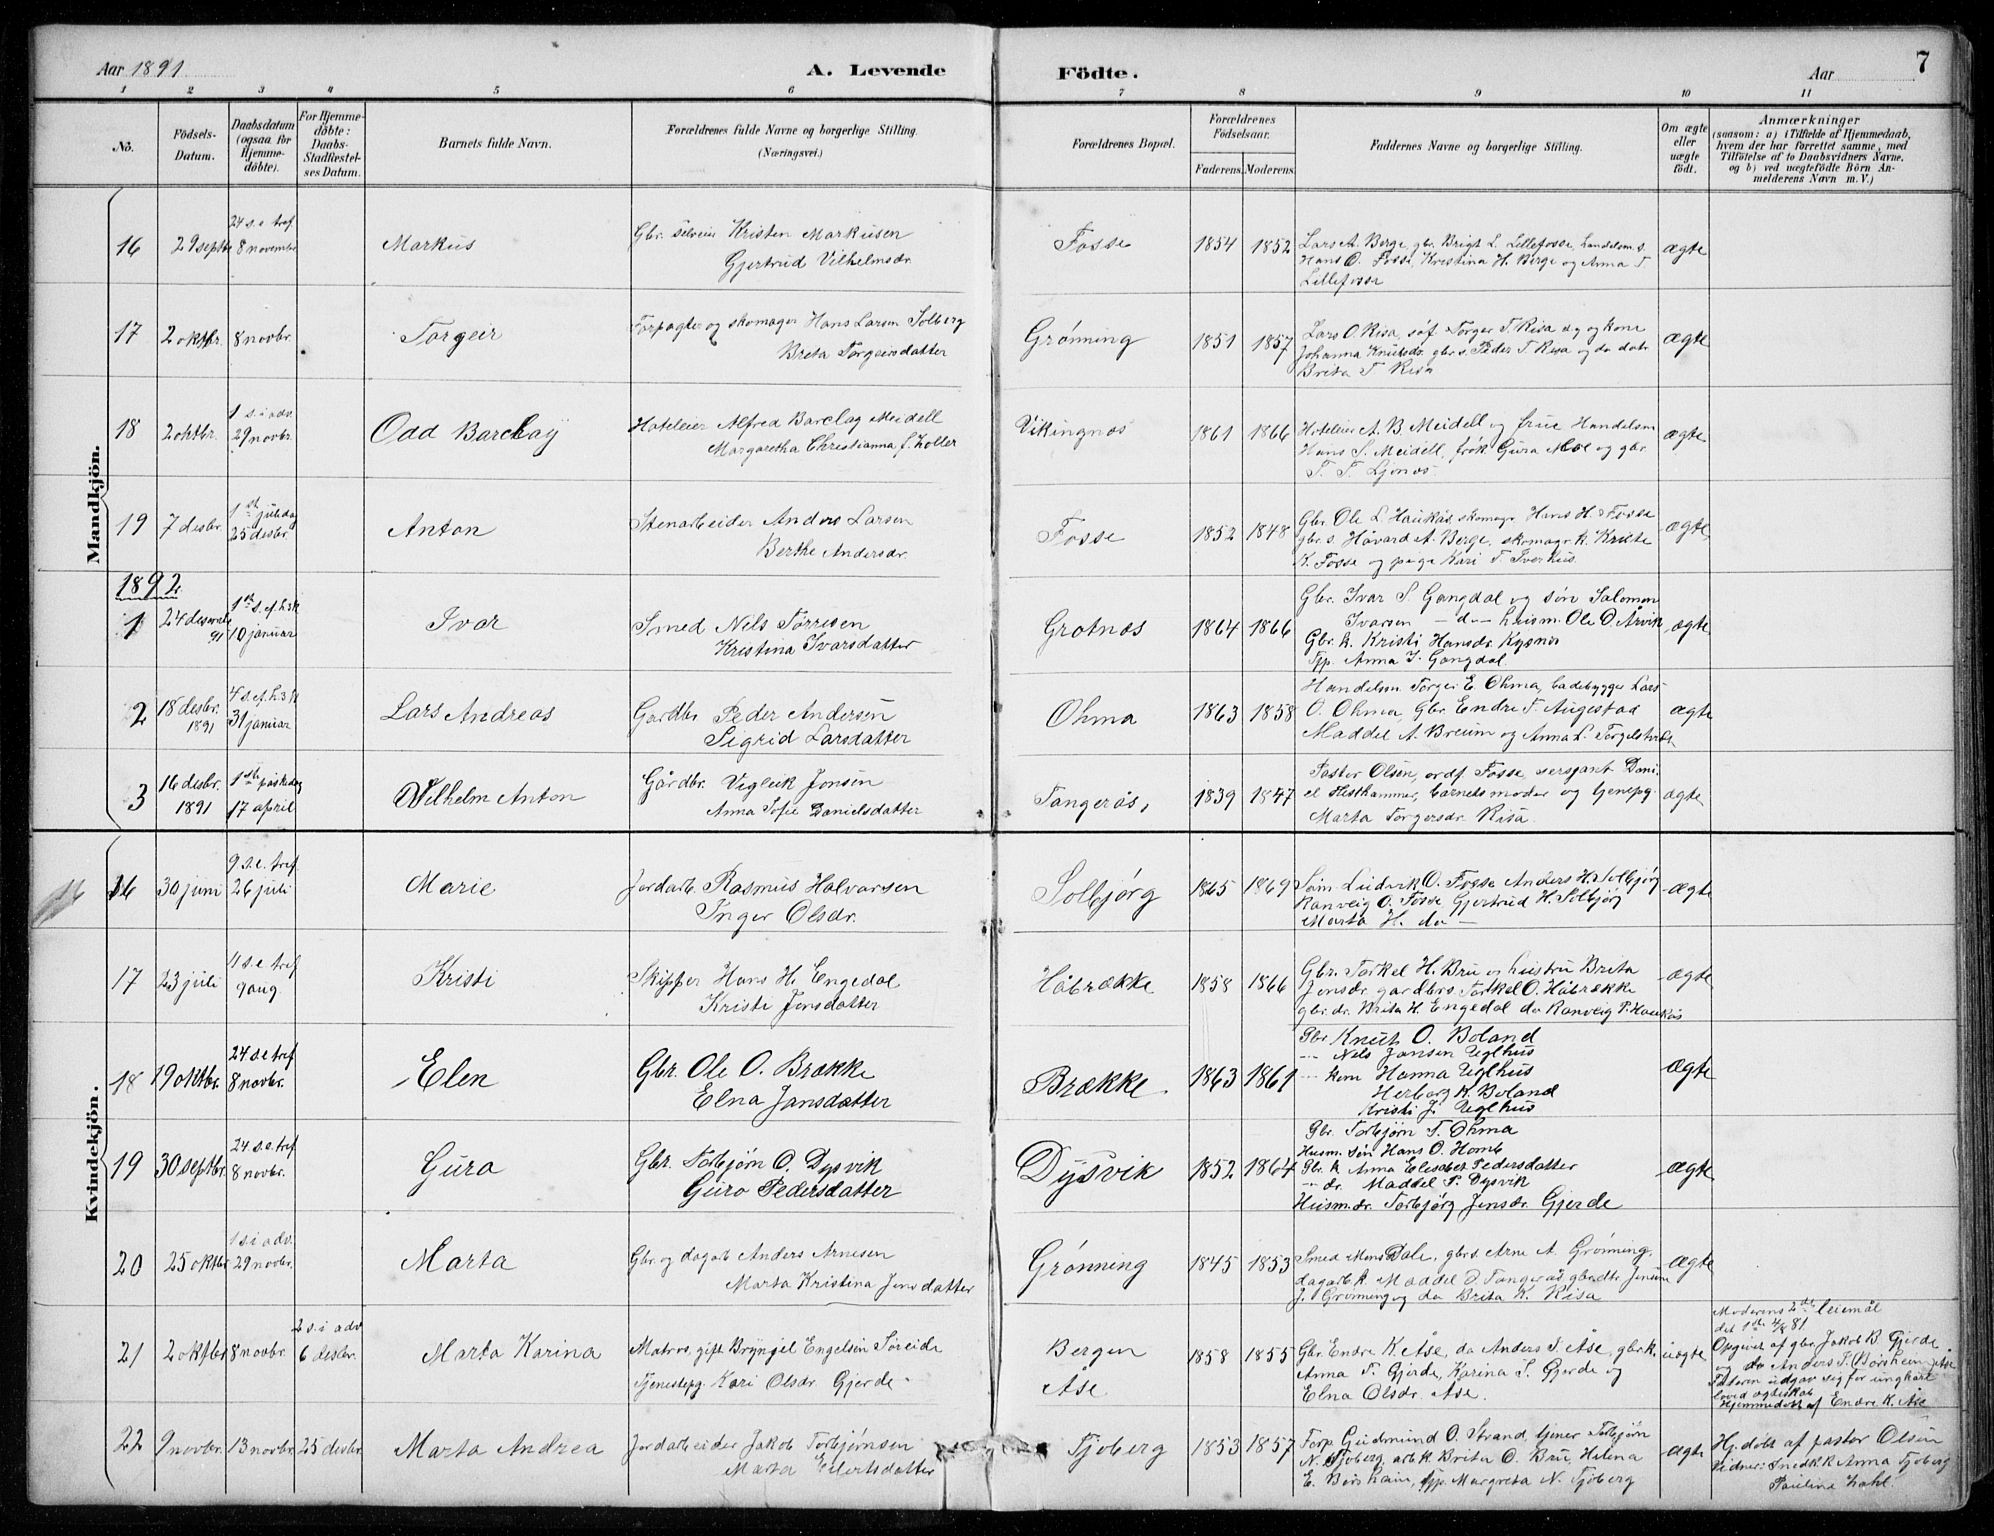 Aar 1891
A. Levende Födte.
Aar
7
1 2 3 4 5 6 7 8 9 10 11
No.
Födsels-Datum.
Daabsdatum (ogsaa for Hjemme-döbte).
For Hjemme-döbte: Daabs-Stadfæstel-ses Datum.
Barnets fulde Navn.
Forældrenes fulde Navne og borgerlige Stilling. (Næringsvei.)
Forældrenes Bopæl.
Forældrenes Födselsaar.
Faderens. Moderens.
Faddernes Navne og borgerlige Stilling.
Om ægte eller uægte födt.
Anmærkninger
(saasom: a) i Tilfælde af Hjemmedaab, hvem der har forrettet samme, med Tilföielse af to Daabsvidners Navne, og b) ved uægtefödte Börn An-melderens Navn m. V.)
Mandkjön.
16 29 septbr 24 s. e. tref 8 november Markus
Gbr. selveier Kristen Markusen
Gjertrud Vilhelmsdr.
Fosse 1854 1852
Lars A. Berge, gbr. Brigt L. Lillefosse, handelsm. s.
Hans O. Fosse, Kristina H. Berge og Anna T.
Lillefosse
ægte
17 2 oktbr. 8 novbr. Torgeir
Forpagter og skomager Hans Larsen Solberg
Brita Torgeirsdatter
Grønning 1851 1857
Lars O. Risa, Torger T. Risa og kone
Johanna Knutsdr. gbr. s. Peder T. Risa og do datr
Brita T. Risa
ægte
18 2 oktbr. 1 s. i adv. 29 novbr. Odd Barclay
Hoteleier Alfred Barclay Meidell
Margaretha Christianna f. Koller
Vikingnes 1861 1866
Hoteleier A. B. Meidell og frue Handelsm
Hans S. Meidell, frøk. Gura Moe og gbr.
T. T. Ljones
ægte
19 7 desbr. 1st juledag 25 desbr. Anton
Stenarbeider Anders Larsen
Berthe Andersdr.
Fosse 1852 1848
Gbr. Ole L. Haukås, skomagr Hans H. Fosse
gbr s. Håvard A. Berge, skomagr. k. Krište
K. Fosse og pige Kari T. Tverhus.
ægte
1892
1 24 desembr 91 1ste s. ef. h3k 10 januar Ivar
Smed Nils Tørrisen
Kristina Ivarsdatter
Grotnes 1864 1866
Gbr. Ivar S. Gangdal og søn Salomon
Ivarsen — do — huism. Ole O. Arvik
Gbr. k. Kristi Hansdr. Kysnes
Tjp. Anna I. Gangdal.
ægte
2 18 desbr. 1891 4 s. ef. h3k 31 januar Lars Andreas
Gardbr. Peder Andersen
Sigrid Larsdatter
Ohma 1863 1858
Handelsm Torgei E. Ohma, badebygger Lars
O. Ohma, Gbr. Endre T. Augestad
Maddel A. Breium og Anna L. Torgelstveit
ægte
3 16 desbr. 1891 1ste påskedag 17 april Vilhelm Anton
Gårdbr. Vigleik Jonsen
Anna Sofie Danielsdatter
Tangerås, 1839 1847
Pastor Olsen, ordf. Fosse, sersjant Dani-
el Hesthammer, barnets moder og
Marta Torgersdr. Risa.
ægte
Kvindekjön.
16 16 30 juni 9 s. e. tref 26 juli Marie
Jordarb. Rasmus Halvarsen
Inger Olsdr.
Solbjørg 1865 1869
Søm. Ludvik O. Fosse Anders H. Solbjørg
Ranveig O. Fosse, Gjertrud H. Solbjørg
Marta H. do —
ægte
17 23 juli 11 s. e. tref 9 aug. Kristi
Skipper Hans H. Engedal
Kristi Jensdatter
Håbrække 1858 1866
Gbr. Torkel H. Bru og hustru Brita
Jensdr. gardbrs Torkel O. Håbrække
gbr. dr. Brita H. Engedal do Ranveig P. Haukås
ægte
18 19 oktbr. 24 s. e tref 8 novbr. Elen
Gbr. Ole O. Brække
Elna Jansdatter
Brække 1863 1861
Gbr Knut O. Boland
— Nils Jansen Uglhus
— kone Hanna Uglhus
Herborg K. Boland
Kristi J. Uglhus
ægte
19 30 septbr. 24 s. e. tref 8 novbr. Gura
Gbr. Torbjørn O. Dysvik
Guro Pedersdatter
Dysvik 1852 1864
Gbr. Torbjørn T. Ohma
Husm. søn Hans O. Homb
Gbr. k Anna Elisabet Pedersdatter
— dr. Maddel P. Dysvik
Huism. dr. Torbjørg Jensdr. Gjerde
ægte
20 25 oktbr 1 s. i adv. 29 novbr. Marta
Gbr. og dagarb Anders Arnesen
Marta Kristina Jensdatter
Grønning 1845 1853
Smed Mons Dale, gbr s. Arne A. Grønning,
dagarb. k Maddel D. Tangerås gbr.dtr Jensine
J. Grønning og do Brita K. Risa
ægte
21 2 oktbr 8 novbr. 2 s. i adv. 6 desbr. Marta Karina
Matros, gift Brynjel Engelsen Søreide
Tjenestepg. Kari Olsdr. Gjerde
Bergen
Åse
1858 1855
Gbr. Endre K. Åse, do Anders T. Åse, gbr k.
Anna T. Gjerde, Karina S. Gjerde og
Elna Olsdr. Åse.
uægte
Moderens 2de leiemål
det 1ste 4/8 81.
Opgivet af gbr. Jakob B. Gjerde
og do Anders T. (Børsheim) Åse
Faderen udgav sig for ungkarl
loved ægteskab
Hjemmedøbt af Endre K. Åse
22 9 novbr. 13 novbr. 25 desbr. Marta Andrea
Jordarbeider Jakob Torbjørnsen
Marta Eilertsdatter
Tjoberg 1853 1857
Forp. Gudmund O. Strand, tjener Torbjørn
N. Tjoberg, arb k Brita O. Bru, Helena
E. Børshaim, tjp. Margreta N. Tjoberg
ægte
Hj. døbt af pastor Olsen
Vidner: Snedk. k Anna Tjoberg
Pauline Dahl.